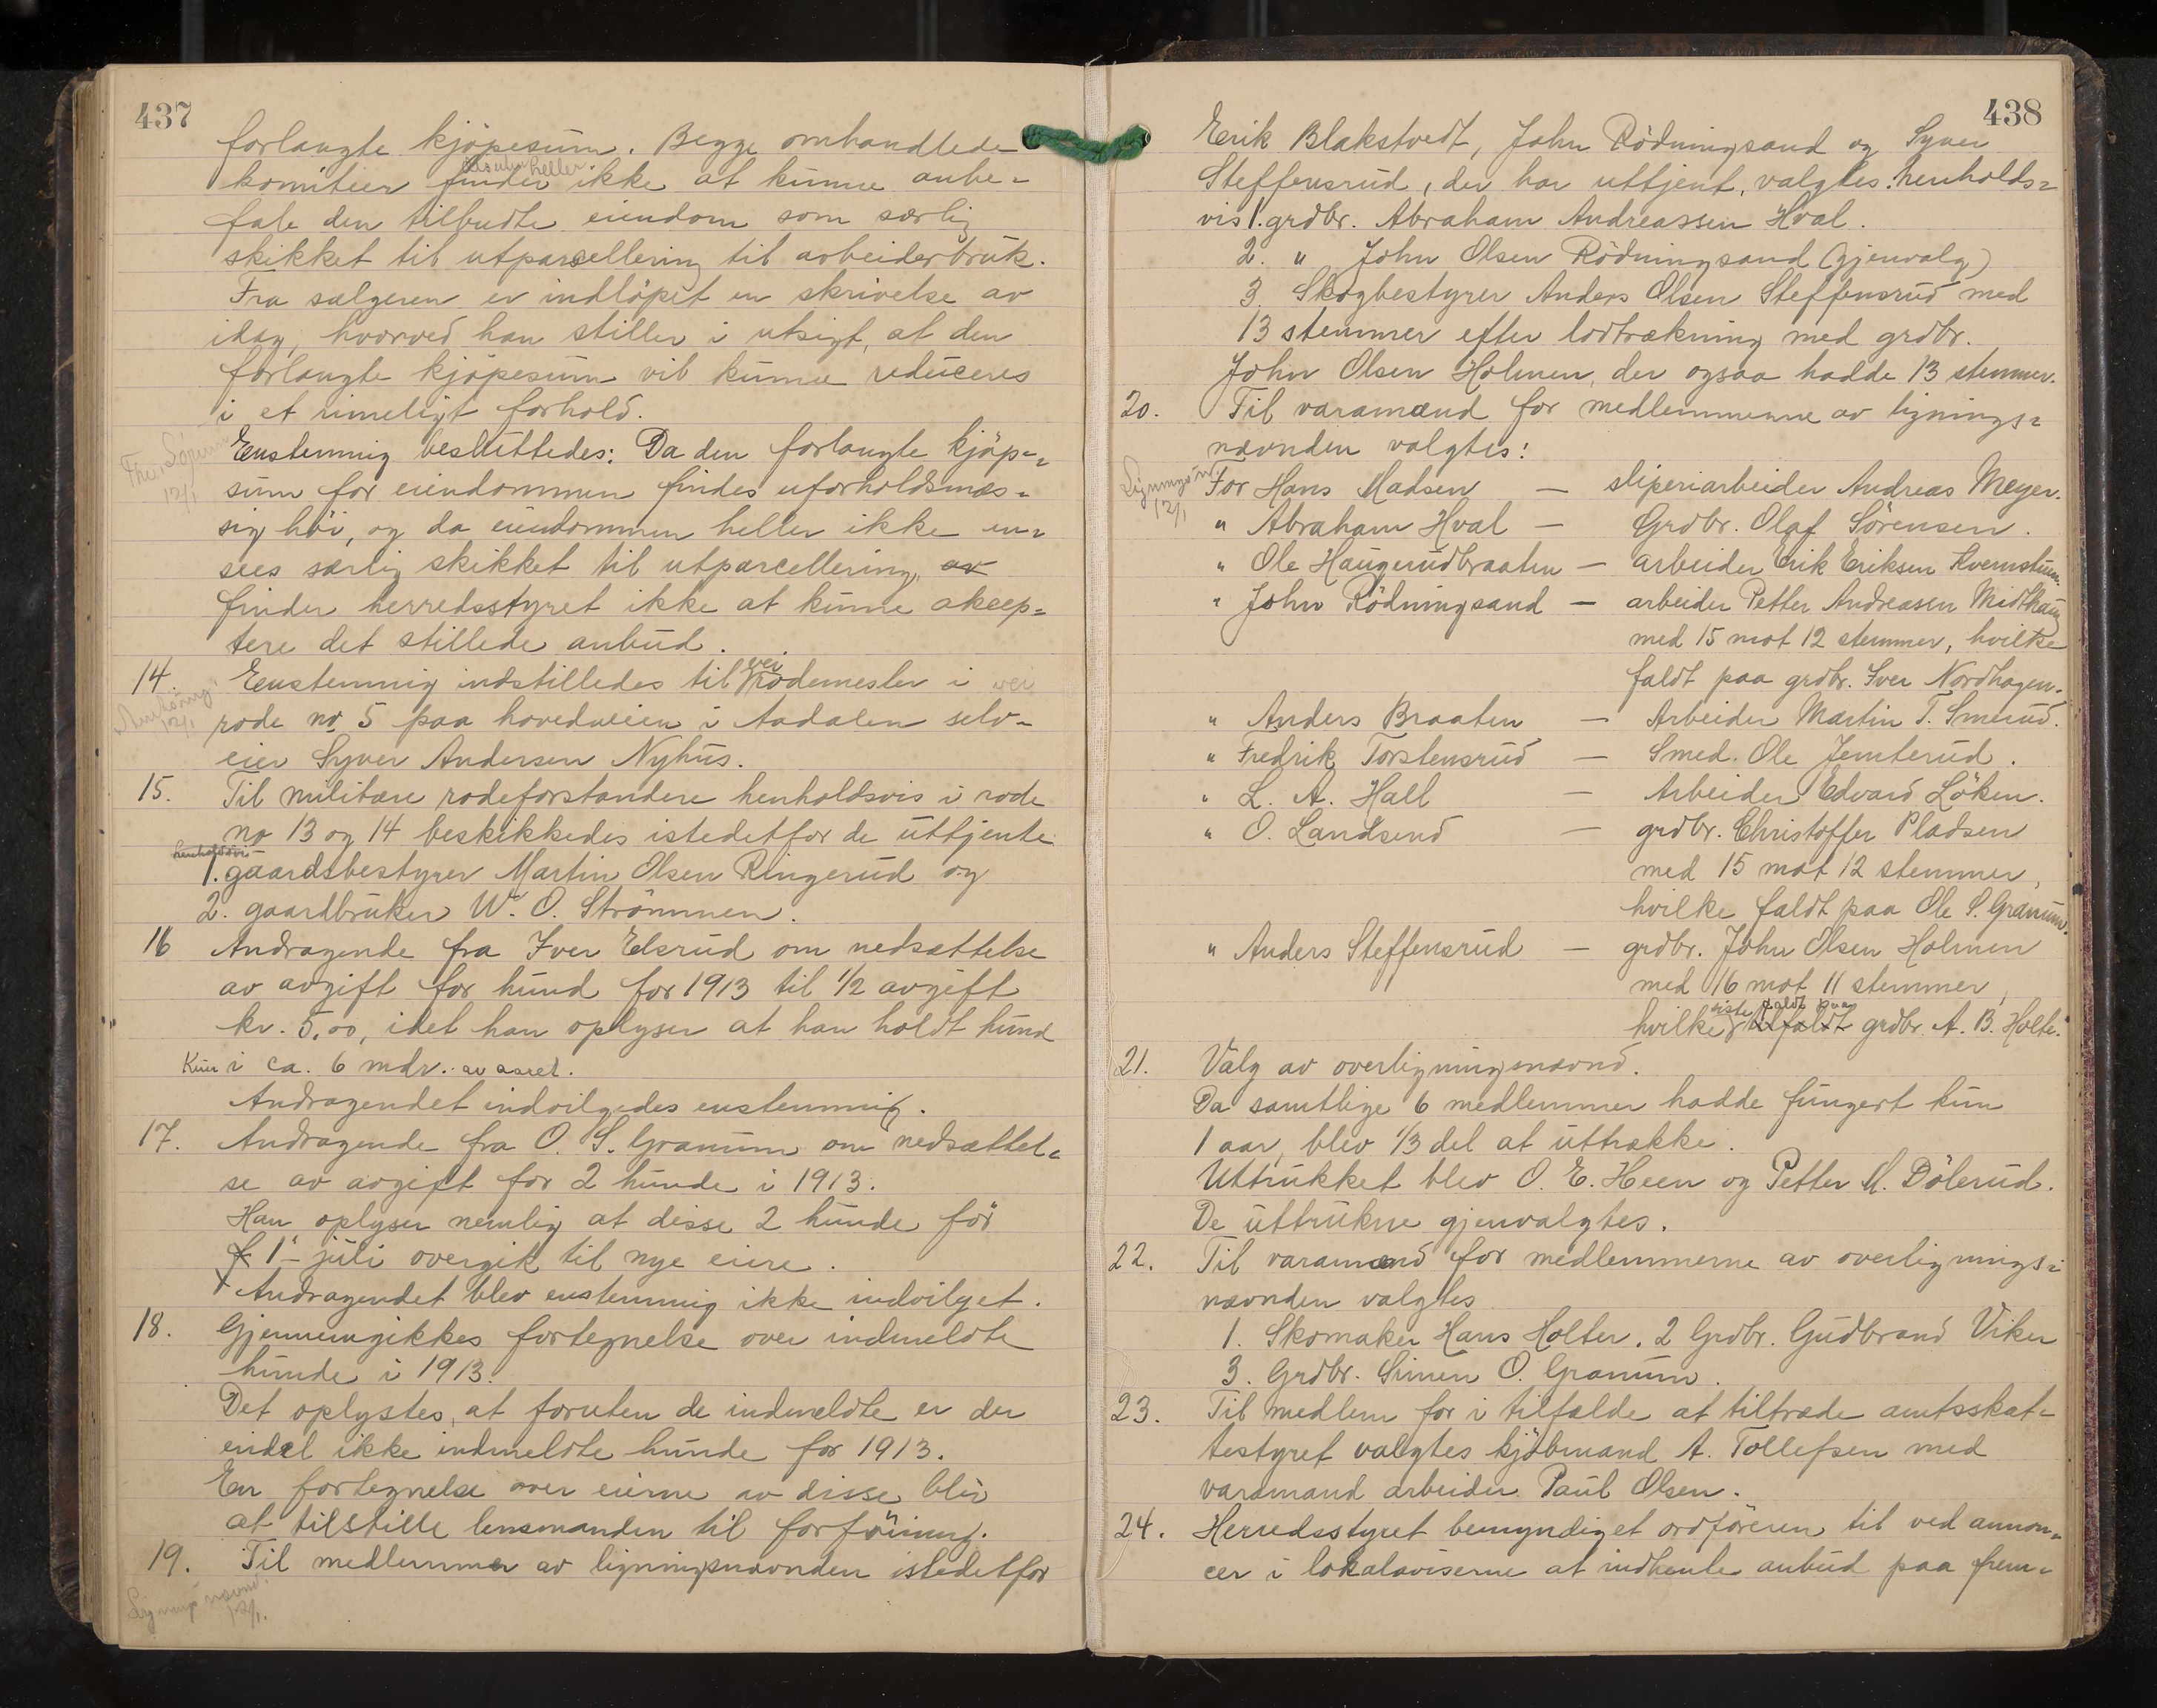 437
forlangte kjöpesum. Begge omhandlede
heller
komiteer finder ikke at kunne anbe-
fale den tilbudte eiendom som særlig
skikket til utparcellering til arbeiderbruk.
Fra sælgeren er indlöpet en skrivelse av
idag, hvorved han stiller i utsigt, at den
forlangte kjöpesum vil kunne reduceres
i et rimeligt forhold.
Enstemmig besluttedes: Da den forlangte kjöpe-
12/1
sum for eiendommen findes uforholdsmæs-
sig höi, og da eiendommen heller ikke an-
sees særlig skikket til utparcellering, av
finder herredsstyret ikke at kunne akcep-
tere det stillede anbud.
14. Enstemmig indstilledes til vei rodemester i vei
12/1
rode no 5 paa hovedveien i Aadalen selv-
eier Syver Andersen Nyhus.
15. Til militære rodeforstandere henholdsvis i rode
no 13 og 14 beskikkedes istedetfor de uttjente
henholdsvis
1. gaardsbestyrer Martin Olsen Ringerud og
2. gaardbruker W. O. Strömmen.
16 Andragende fra Iver Elsrud om nedsættelse
av avgift for hund for 1913 til 1/2 avgift
kr. 5,00, idet han oplyser at han holdt hund
Kun i ca. 6 mdr. av aaret.
Andragendet indvilgedes enstemmig.
17. Andragende fra O. S. Granum om nedsættel-
se av avgift for 2 hunde i 1913.
Han oplyser nemlig at disse 2 hunde för
f 1ste juli overgik til nye eiere.
Andragendet blev enstemmig ikke indvilget.
18. Gjennemgikkes fortegnelse over indmeldte
hunde i 1913.
Det oplystes, at foruten de indmeldte er der
endel ikke indmeldte hunde for 1913.
En fortegnelse over eierne av disse blir
at tilstille lensmanden til forföining.
19. Til medlemmer av ligningsnævnden istedetfor
Ligningsnævnd.
12/1.
438
Erik Blakstvedt, John Rödningsand og Syver
Steffensrud, der har uttjent, valgtes: henholds-
vis 1. grdbr. Abraham Andreassen Hval.
2. " John Olsen Rödningsand (gjenvalg)
3. Skogbestyrer Anders Olsen Steffensrud med
13 stemmer efter lodtrækning med grdbr.
John Olsen Holmen, der ogsaa hadde 13 stemmer.
20. Til varamænd for medlemmerne av lignings-
nævnden valgtes:
Ligningsn.
12/1
For Hans Madsen — sliperiarbeider Andreas Meyer.
" Abraham Hval — Grdbr. Olaf Sörensen.
" Ole Haugerudbraaten — arbeider Erik Eriksen Kvernstuen.
" John Rödningsand — arbeider Petter Andreasen Midthaug
med 15 mot 12 stemmer, hvilke
faldt paa grdbr. Iver Nordhagen.
" Anders Braaten — Arbeider Martin T. Smerud.
" Fredrik Torstensrud — Smed. Ole Jemterud.
" L. A. Hall — Arbeider Edvard Löken.
" O. Landsend — grdbr. Christoffer Pladsen
med 15 mot 12 stemmer,
hvilke faldt paa Ole S. Granum.
" Anders Steffensrud — grdbr. John Olsen Holmen
med 16 mot 11 stemmer,
siste faldt paa
hvilke tilfaldt grdbr. A. B. Holte.
21. Valg av overligningsnævnd.
Da samtlige 6 medlemmer hadde fungert kun
1 aar, blev 1/3 del at uttrække.
Uttrukket blev O. E. Heen og Petter M. Dölerud.
De uttrukne gjenvalgtes.
22. Til varamænd for medlemmerne av overlignings-
nævnden valgtes
1. Skomaker Hans Holter. 2 Grdbr. Gudbrand Viker
3. Grdbr. Simen O. Granum.
23. Til medlem for i tilfælde at tiltræde amtsskat-
testyret valgtes kjöbmand A. Tollefsen med
varamand arbeider Paul Olsen.
24. Herredsstyret bemyndiget ordföreren til ved annon-
cer i lokalaviserne at indhente anbud paa frem-